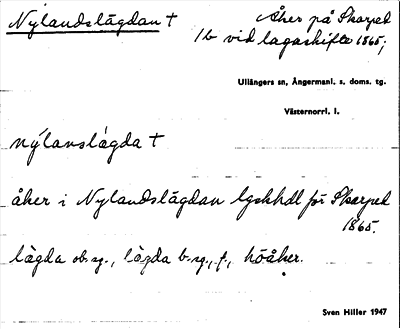 Nylandslägdan †
Åker på Skarped
1b vid lagaskifte 1865;
Ullångers sn, Ångermanl. s. doms. tg.
Västernorrl. l.
nýlanslàgda †
åker i Nylandslägdan lgskhdl för Skarped
1865.
làgda ob.sg., làgda b.sg., f., höåker.
Sven Hiller 1947